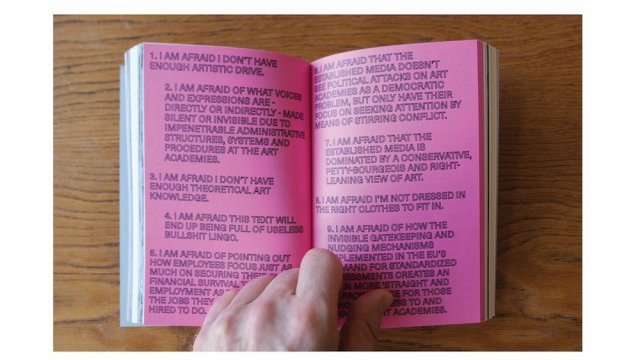 1. I AM AFRAID I DON'T HAVE
ENOUGH ARTISTIC DRIVE.
2. I AM AFRAID OF WHAT VOICES
AND EXPRESSIONS ARE -
DIRECTLY OR INDIRECTLY - MADE
SILENT OR INVISIBLE DUE TO
IMPENETRABLE ADMINISTRATIVE
STRUCTURES, SYSTEMS AND
PROCEDURES AT THE ART
ACADEMIES.
3. I AM AFRAID I DON'T HAVE
ENOUGH THEORETICAL ART
KNOWLEDGE.
4. I AM AFRAID THIS TEXT WILL
END UP BEING FULL OF USELESS
BULLSHIT LINGO.
5. I AM AFRAID OF POINTING OUT
HOW EMPLOYEES FOCUS JUST AS
MUCH ON SECURING THEIR
FINANCIAL SURVIVAL
EMPLOYMENT AS
THE JOBS THEY
HIRED TO DO.
6. I AM AFRAID THAT THE
ESTABLISHED MEDIA DOESN'T
SEE POLITICAL ATTACKS ON ART
ACADEMIES AS A DEMOCRATIC
PROBLEM, BUT ONLY HAVE THEIR
FOCUS ON SEEKING ATTENTION BY
MEANS OF STIRRING CONFLICT.
7. I AM AFRAID THAT THE
ESTABLISHED MEDIA IS
DOMINATED BY A CONSERVATIVE,
PETTY-BOURGEOIS AND RIGHT-
LEANING VIEW OF ART.
8. I AM AFRAID I'M NOT DRESSED IN
THE RIGHT CLOTHES TO FIT IN.
9. I AM AFRAID OF HOW THE
INVISIBLE GATEKEEPING AND
NUDGING MECHANISMS
IMPLEMENTED IN THE EU'S
FOR STANDARDIZED
CREATES AN
MORE 'STRAIGHT AND
FOR THOSE
TO AND
ACADEMIES.